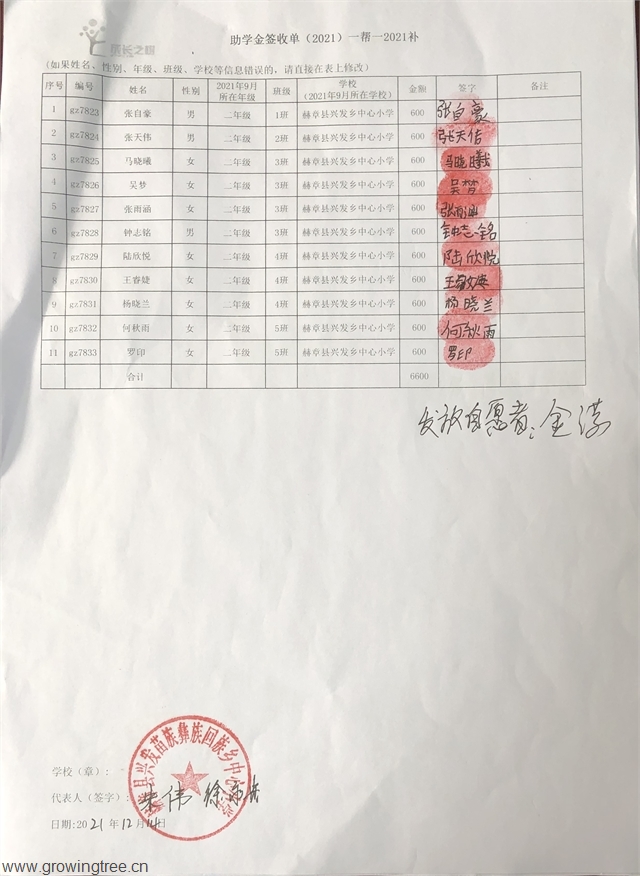 成长之树
助学金签收单（2021）一帮一2021补
(如果姓名、性别、年级、班级、学校等信息错误的，请直接在表上修改）
序号 编号 姓名 性别 2021年9月所在年级 班级 学校（2021年9月所在学校） 金额 签字 备注
1 gz7823 张自豪 男 二年级 1班 赫章县兴发乡中心小学 600 张自豪
2 gz7824 张天伟 男 二年级 2班 赫章县兴发乡中心小学 600 张天伟
3 gz7825 马晓曦 女 二年级 3班 赫章县兴发乡中心小学 600 马晓曦
4 gz7826 吴梦 女 二年级 3班 赫章县兴发乡中心小学 600 吴梦
5 gz7827 张雨涵 女 二年级 3班 赫章县兴发乡中心小学 600 张雨涵
6 gz7828 钟志铭 男 二年级 3班 赫章县兴发乡中心小学 600 钟志铭
7 gz7829 陆欣悦 女 二年级 4班 赫章县兴发乡中心小学 600 陆欣悦
8 gz7830 王睿婕 女 二年级 4班 赫章县兴发乡中心小学 600
9 gz7831 杨晓兰 女 二年级 4班 赫章县兴发乡中心小学 600 杨晓兰
10 gz7832 何秋雨 女 二年级 5班 赫章县兴发乡中心小学 600 何秋雨
11 gz7833 罗印 女 二年级 5班 赫章县兴发乡中心小学 600 罗印
合计 6600
发放自愿者：金
赫章县兴发苗族彝族回族乡中心小学
学校（章）：
代表人（签字）：朱伟 徐
日期:2021年12月14日
www.growingtree.cn